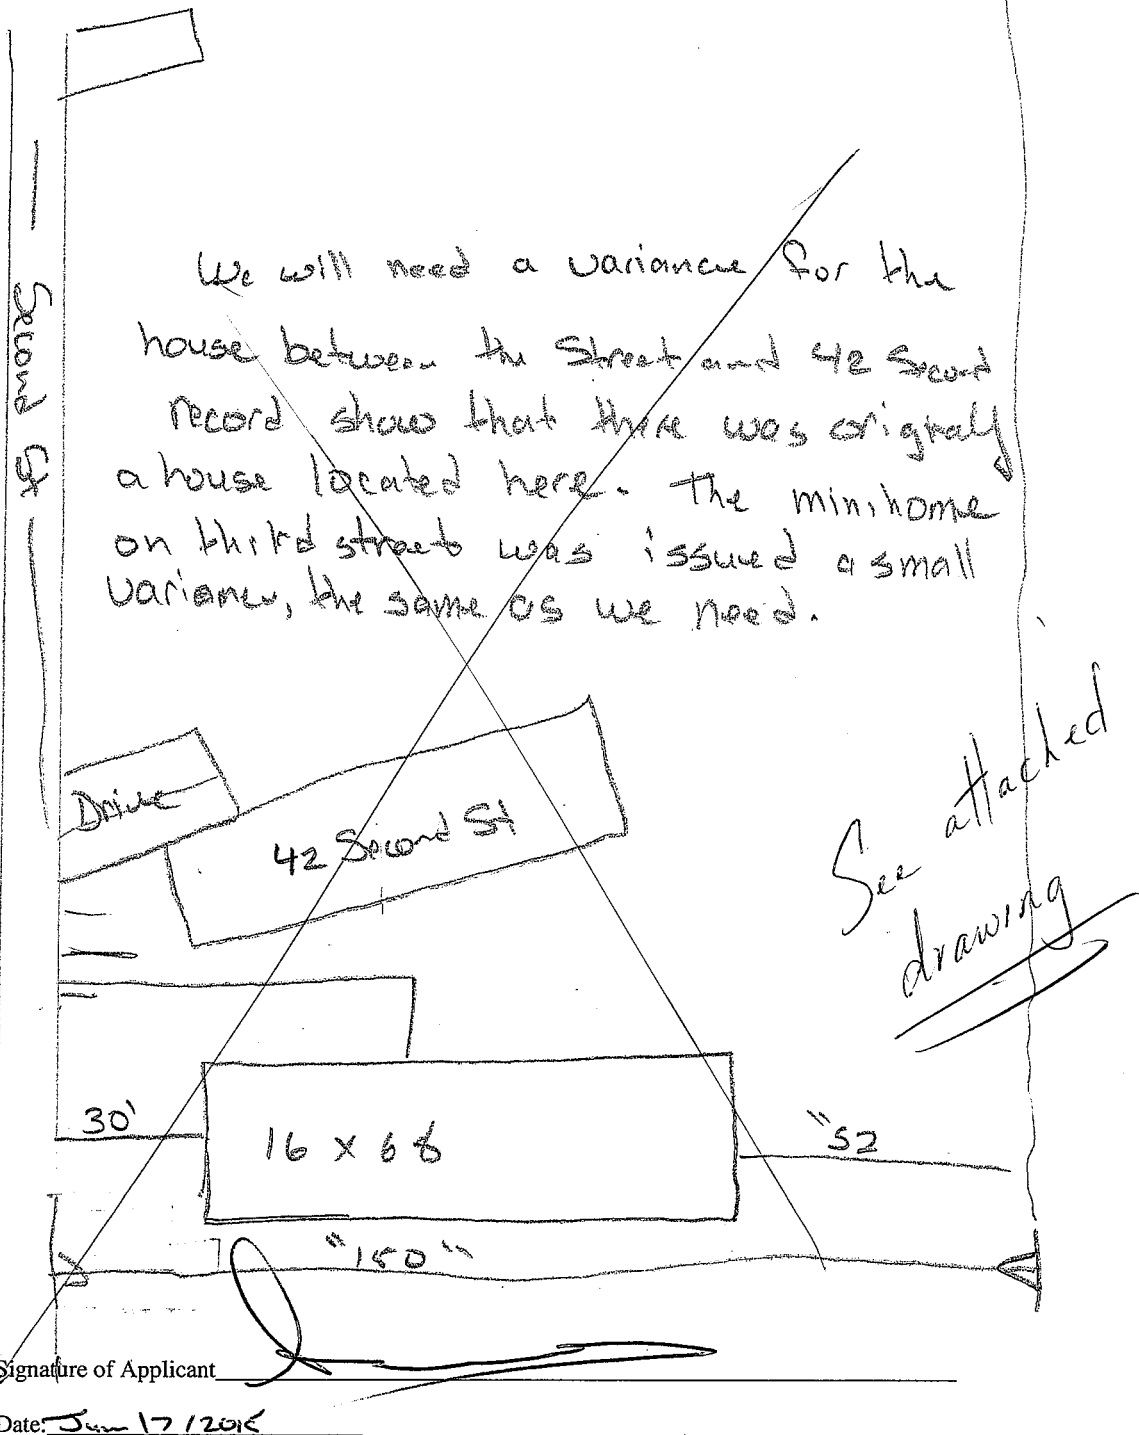 Second St
We will need a variance for the
house between the Street and 42 Second
record show that there was originaly
a house located here. The minihome
on third street was issued a small
variance, the same as we need.
Drive
42 Second St
See attached
drawing
30'
16 x 68
"52
"150"
Signature of Applicant
Date: Jun 17 /